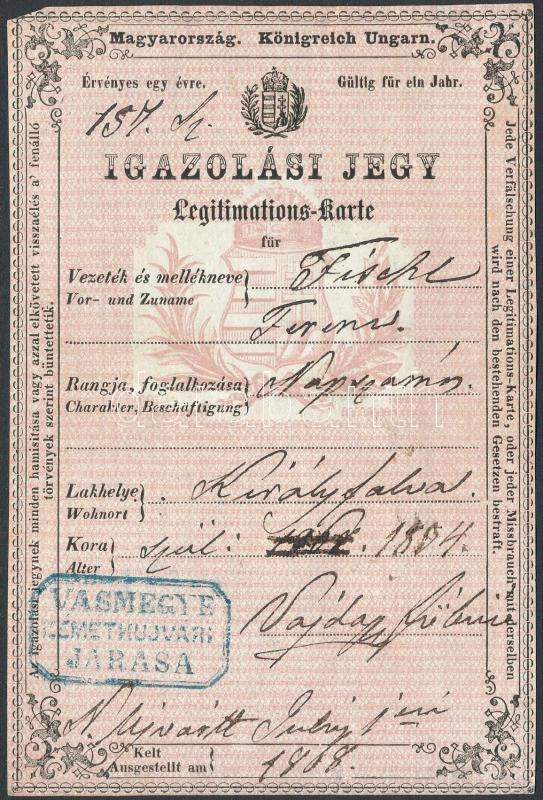 Magyarország. Königreich Ungarn.
Érvényes egy évre. Gültig für ein Jahr.
157. Sz.
IGAZOLÁSI JEGY
Legitimations-Karte
für
Vezeték és mellékneve
Vor- und Zuname
Fischl
Ferencz.
Rangja, foglalkozása
Charakter, Beschäftigung
Napszamos.
Lakhelye
Wohnort
Királyfalva.
Kora
Alter
szül: 1804.
VASMEGYE
NÉMETHUJVÁRI
JÁRÁSA
N. Ujvártt July 1
Kelt
Ausgestellt am
Az igazolási jegynek minden hamisitása vagy azzal elkövetett visszaélés a' fenálló
törvények szerint büntettetik.
Jede Verfälschung einer Legitimations-Karte, oder jeder Missbrauch mit derselben
wird nach den bestehenden Gesetzen bestraft.